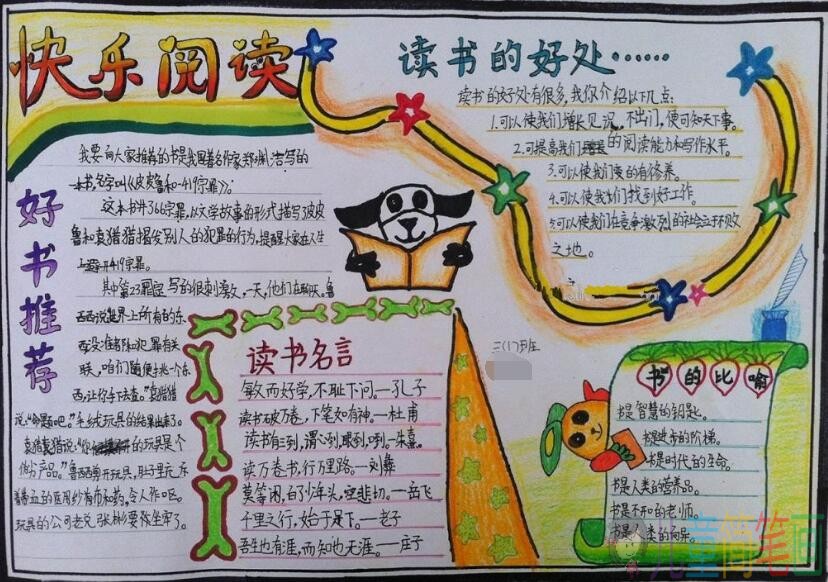 快乐阅读
好书推荐
我要向大家推荐的书是我国著名作家郑渊洁写的
一本书,名字叫《皮皮鲁和419宗罪》。
这本书共366宗罪,以文学故事的形式描写了皮皮
鲁和袁猎猎揭发别人的犯罪的行为,提醒大家在人生
上避开419宗罪。
其中第23罪写的很刺激,一天,他们在聊天。鲁
西西说世界上所有的东
西没准都和犯罪有关
联,咱们随便挑一个东
西,让你手下去查。"袁猎猎
说:"命题吧。"毛绒玩具的结果出来了。
的玩具是个
伪劣产品。"鲁西西剪开玩具,肚子里
的医用纱布和药,令人作呕。
玩具的公司老兄张彬要
读书的好处……
读书的好处有很多,我你介绍以下几点:
1.可以使我们增长见识,不出门,便可知天下事。
2.可提高我们的阅读能力和写作水平。
3.可以使我们变的有修养。
4.可以使我们找到好工作。
5.可以使我们在竞争激烈的社会立于不败
之地。
三(1)班
读书名言
敏而好学,不耻下问。—孔子
读书破万卷,下笔如有神。—杜甫
读书有三到,谓心到,眼到,口到。—朱熹
读万卷书,行万里路。—刘彝
莫等闲,白了少年头,空悲切。—岳飞
千里之行,始于足下。—老子
吾生也有涯,而知也无涯。—庄子
书的比喻
书是智慧的钥匙。
书是进步的阶梯。
书是时代的生命。
书是人类的营养品。
书是不和的老师。
书是人类的向导。
儿童简笔画